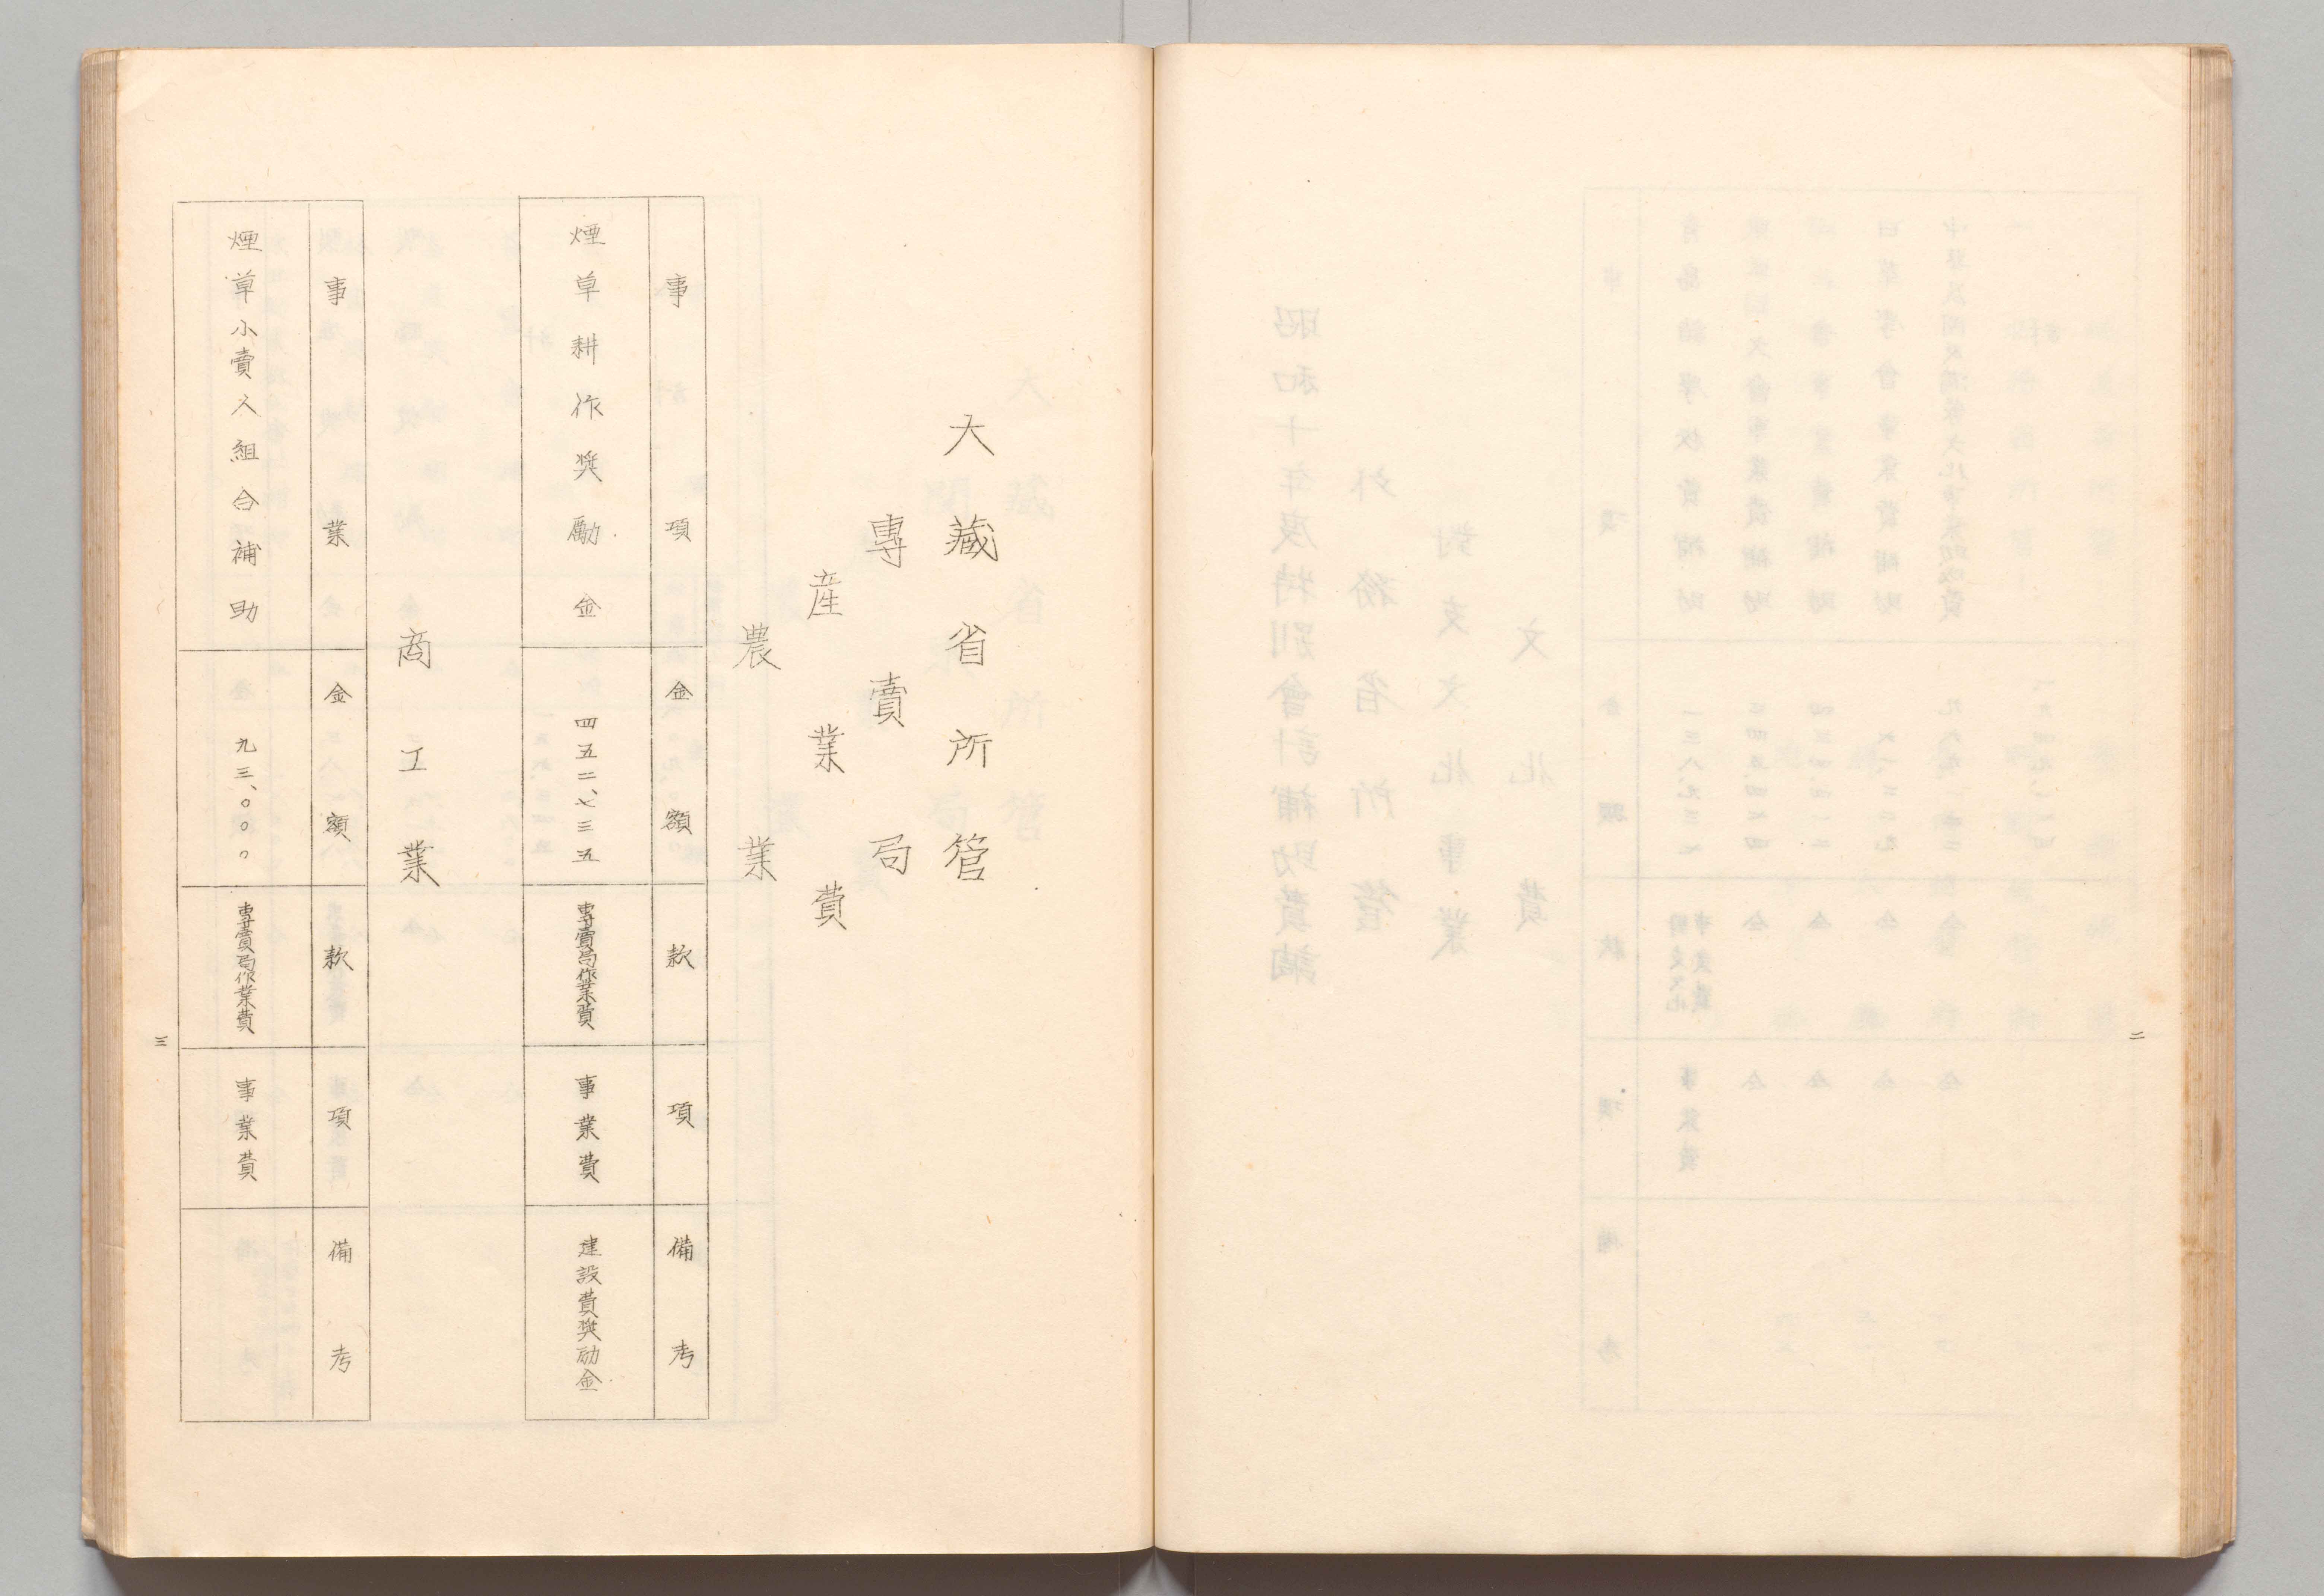 二
大藏省所管
專賣局
産業費
農業
事項 金額 款 項 備考
煙草耕作奬勵金 四五二、七三五 專賣局作業費 事業費 建設費奬励金
商工業
事業 金額 款 項 備考
煙草小賣人組合補助 九三、〇〇〇 專賣局作業費 事業費
三